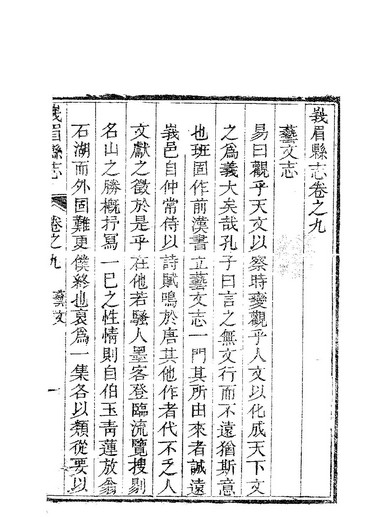 峩眉縣志卷之九
藝文志
易曰觀乎天文以察時變觀乎人文以化成天下文
之爲義大矣哉孔子曰言之無文行而不遠猶斯意
也班固作前漢書立藝文志一門其所由來者誠遠
峩邑自仲常侍以詩賦鳴於唐其他作者代不乏人
文獻之徵於是乎在他若騷人墨客登臨流覽搜剔
名山之勝概抒寫一巳之性情則自伯玉靑蓮放翁
石湖而外固難更僕終也裒爲一集各以類從要以
峩眉縣志 卷之九 藝文 一